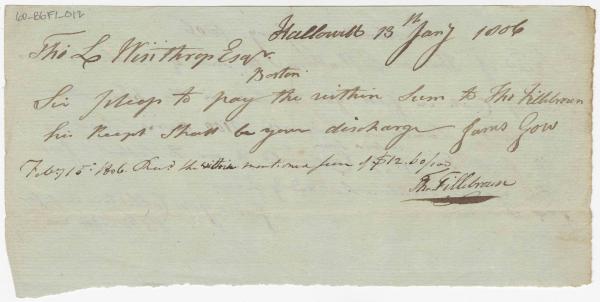 60-B6F1-012
Hallowell 13th Jany 1806
Tho L Winthrop Esqr.
Boston
Sir pleas to pay the within Sum to Tho Fillebrown
his Recept Shall be your discharge James Gow
Feby 15. 1806. Recd. the within mentioned sum of $12.60/100
Tho. Fillebrown